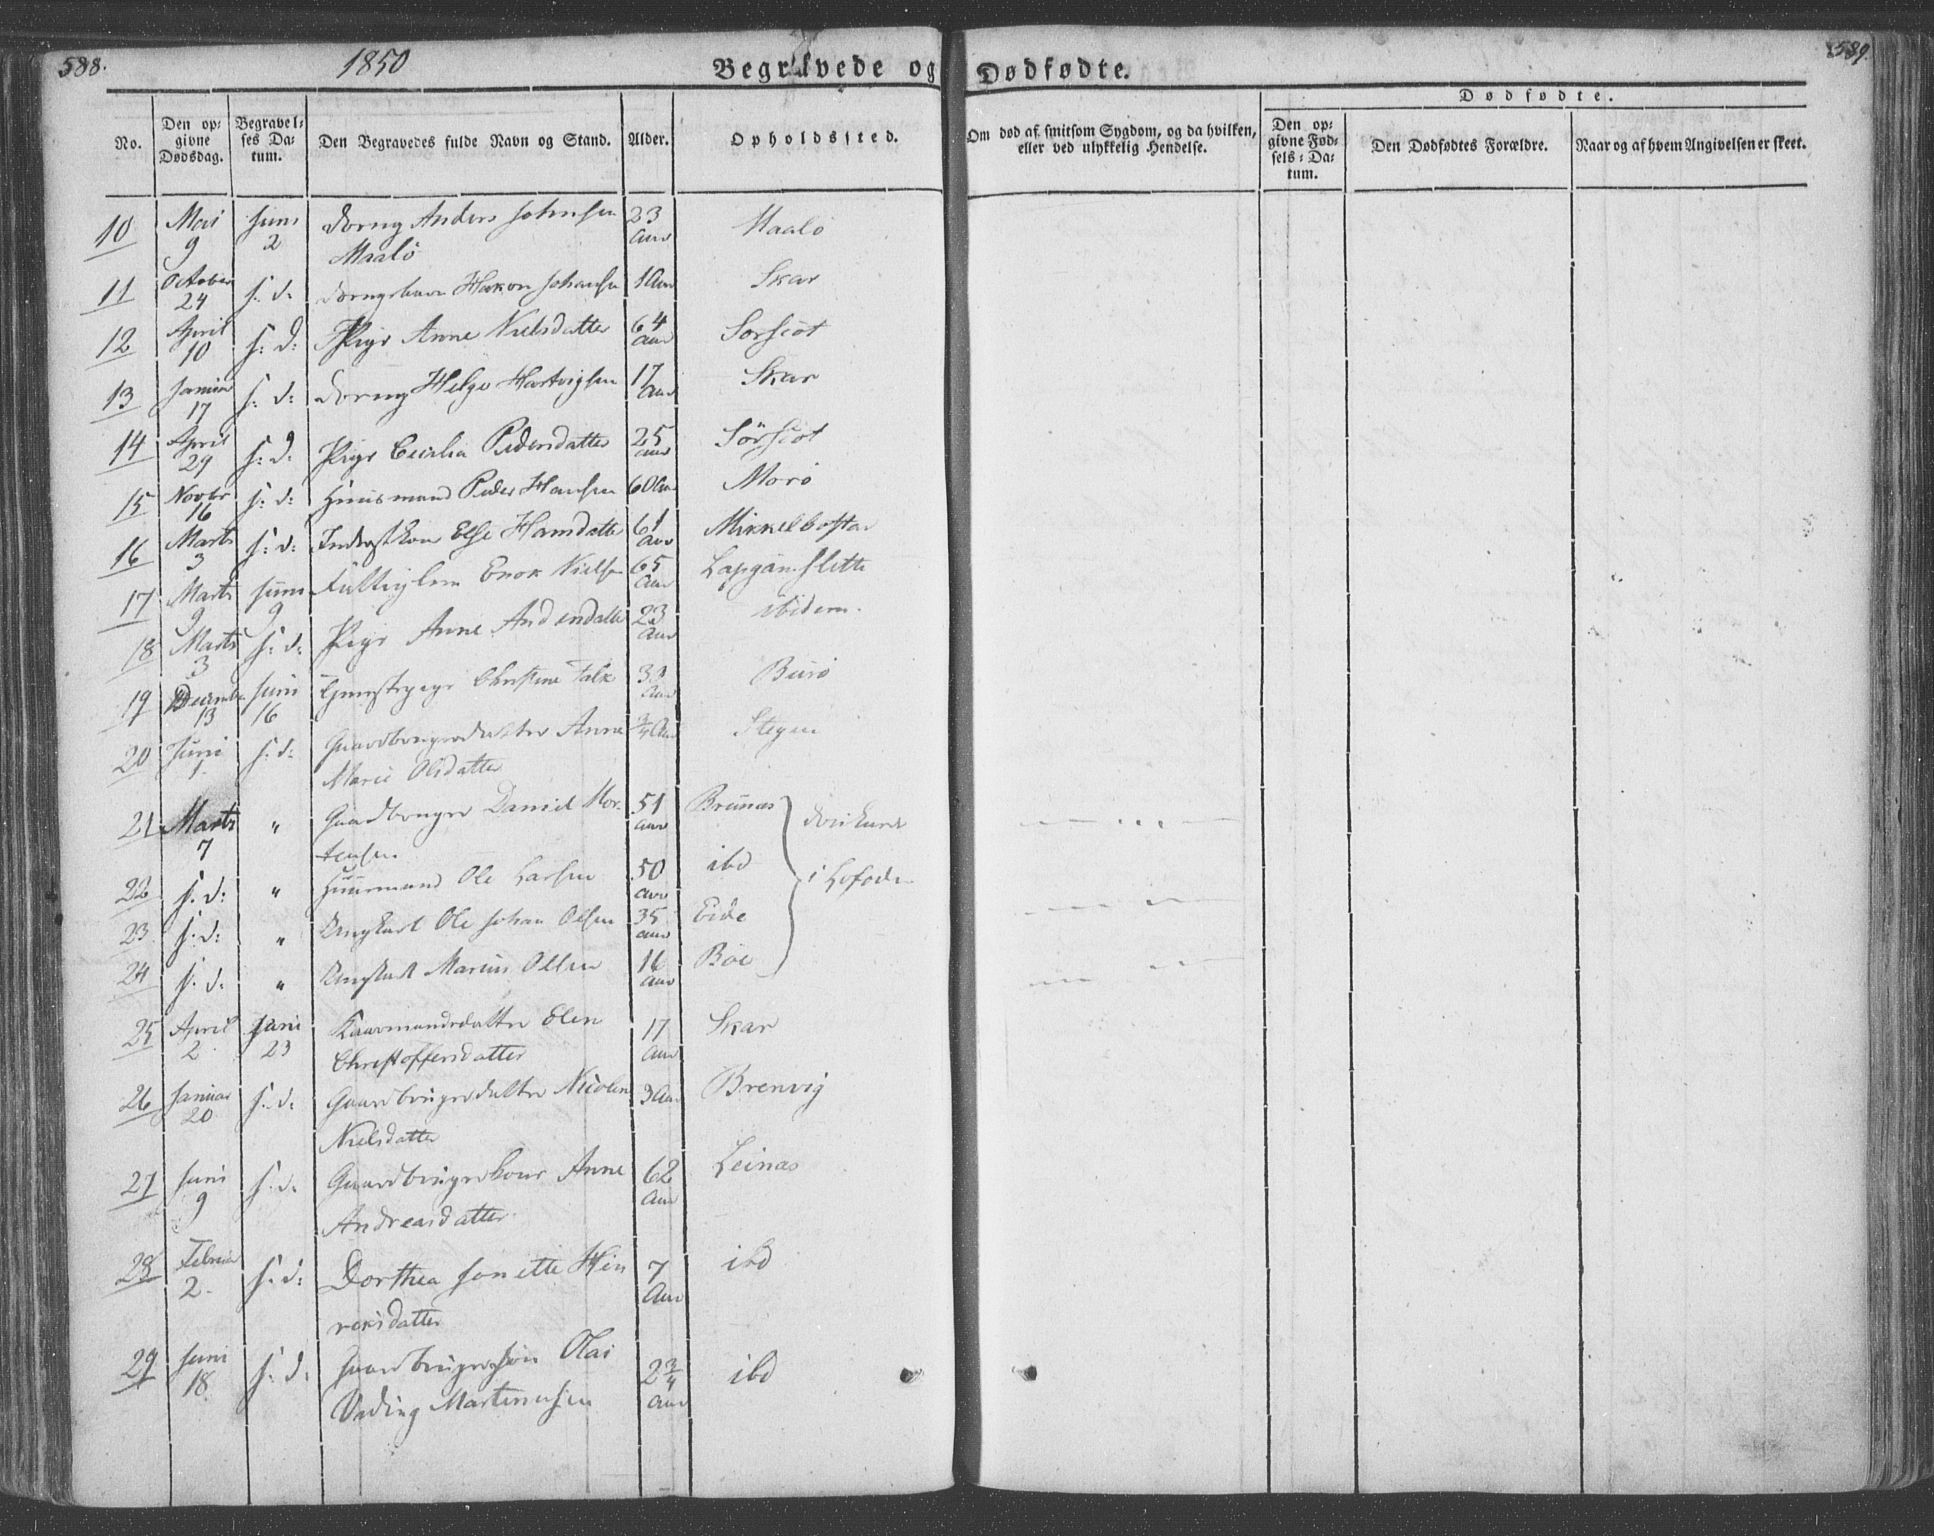 588.
1850
Begravede og Dødfødte.
589.
No.
Den opgivne Dødsdag.
Begravelses Datum.
Den Begravedes fulde Navn og Stand.
Alder.
Opholdssted.
Om død af smitsom Sygdom, og da hvilken, eller ved ulykkelig Hendelse.
Dødfødte.
Den opgivne Fødsels-Datum.
Den Dødfødtes Forældre.
Naar og af hvem Angivelsen er skeet.
10 Mai 9 Juni 2 Dreng Anders Johnsen 23 Aar Maalö
Maalö
11 October 24 s: d: Hakon Johansen 1 Aar Skar
12 April 10 s: d: Pige Anne Nielsdatter 64 Aar Sorscot
13 Januar 17 s: d: Dreng Helge Hartvigsen 17 Aar Skar
14 April 29 s: d: Pige Cecilia Pedersdatter 25 Aar Sörscot
15 Novbr 16 s: d: Huusmand Peder Hansen 60 Aar Morö
16 Marts 3 s: d: Else Hansdatter 61 Aar Mikkelbostad
17 Marts 9 Juni 9 Enok Nielsen 65 Aar
18 Marts 3 s: d: Pige Anne 23 Aar ibidem.
19 December 13 Juni 16 Christine Falk Aar Burö
20 Juni 1 s: d: Gaardbrugerdatter Anne Aar Stegen
Marie Olsdatter
21 Marts 7 " Gaardbruger Daniel Mor- 51 Aar Brunas
tensen
22 s: d: " Huusmand Ole Larsen 50 Aar ibd i Lofoden
23 s: d: " Ungkarl Ole Johan Olsen 35 Aar Eide
24 s: d: " Ungkarl Marius Olsen 16 Aar Böe
25 April 2 Juni 23 Elen 17 Aar Skar
Christoffersdatter
26 Januar 20 s: d: Gaardbrugerdatter Nicolen 3 Aar Brenvig
Nielsdatter
27 Juni 9 s: d: Gaardbrugerkone Anne 62 Aar Leinas
Andreasdatter
28 Februar 2. s: d: Dorthea Jonette Hen 7 Aar ibd
reksdatter
29 Juni 18 s: d: Gaardbrugersön Olai 2 3/4 Aar ibd
Martinussen